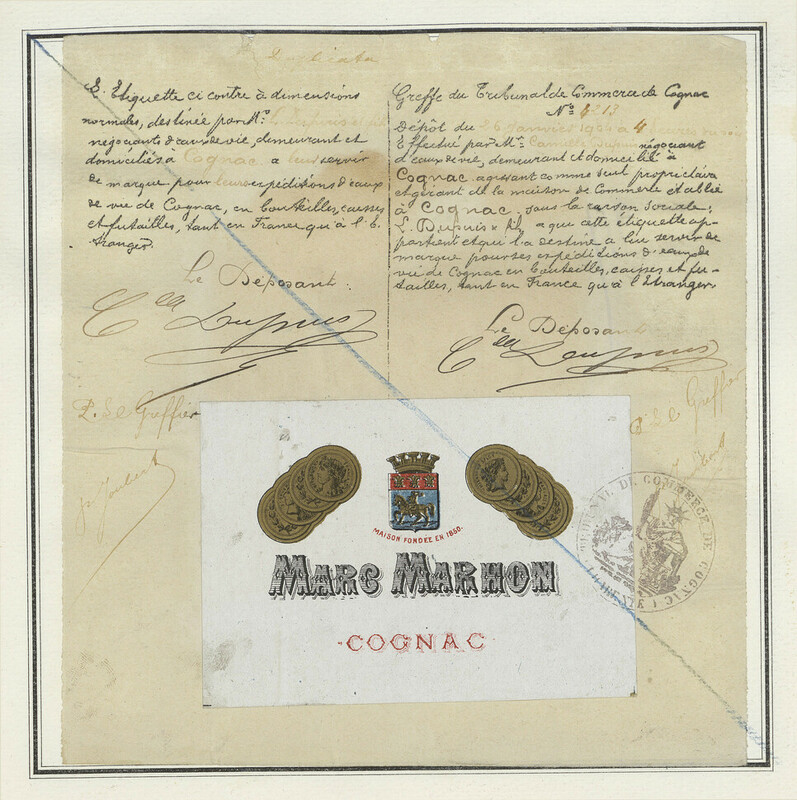 Duplicata
L'Etiquette ci contre à dimensions
normales, destinée par Mr. L. Dupuis & fils
négociants d'eaux de vie, demeurant et
domiciliés à Cognac a leur servir
de marque pour leurs expéditions d'eaux
de vie de Cognac, en bouteilles, caisses
et futailles, tant en France qu'à l'E-
tranger.
Le Déposant:
Cll Dupuis
P. Le Greffier
Greffe du Tribunal de Commerce de Cognac
No 4213
Dépôt du 26 janvier 1904 à 4 heures du soir
Effectué par Mr. Camille Dupuis négociant
d'eaux de vie, demeurant et domicilié à
Cognac agissant comme seul propriétaire
et gérant de la maison de Commerce établie
à Cognac, sous la raison sociale:
L. Dupuis & fils a que cette étiquette ap-
partient et qui l'a destine a lui servir de
marque pour ses expéditions d'eaux de
vie de Cognac en bouteilles, caisses et fu-
tailles, tant en France qu'à l'Etranger
Le Déposant
Cll Dupuis
P. Le Greffier
MAISON FONDÉE EN 1850.
MARC MARHON
COGNAC
TRIBUNAL DE COMMERCE DE COGNAC (CHARENTE)